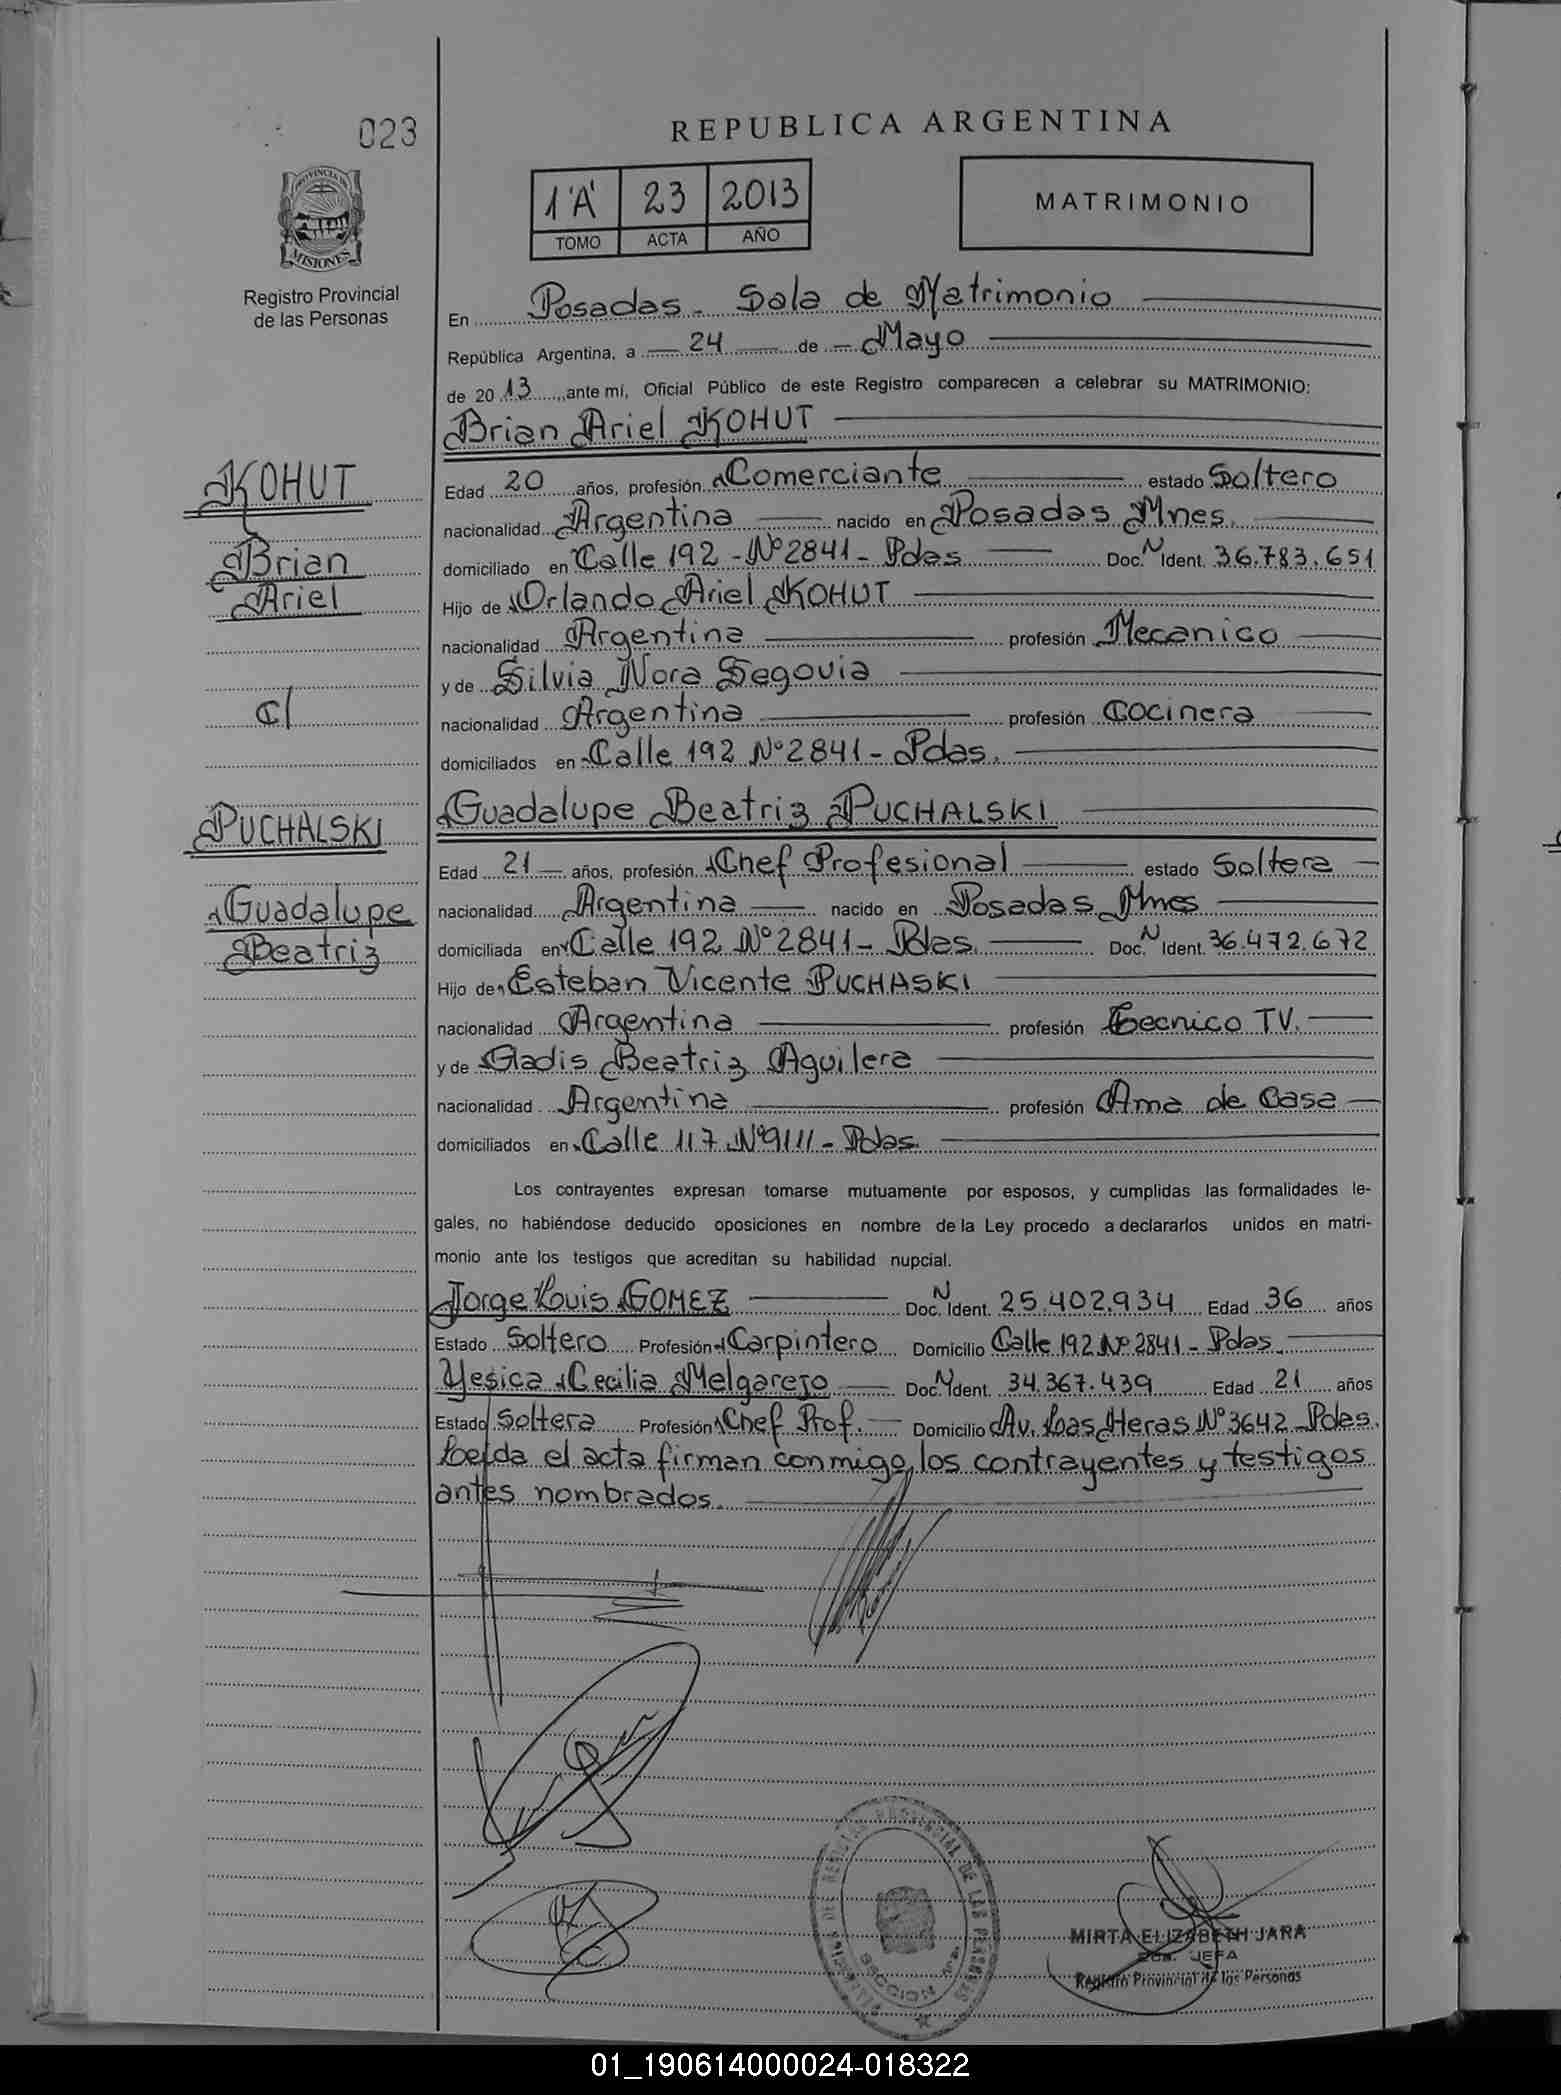 023
REPUBLICA ARGENTINA
1'A' 23 2013
TOMO ACTA AÑO
MATRIMONIO
PROVINCIA DE
MISIONES
Registro Provincial
de las Personas
En Posadas - Sala de Matrimonio
República Argentina, a 24 de Mayo
de 2013 ante mí, Oficial Público de este Registro comparecen a celebrar su MATRIMONIO:
Brian Ariel KOHUT
KOHUT
Brian
Ariel
C/
PUCHALSKI
Guadalupe
Beatriz
Edad 20 años, profesión Comerciante estado Soltero
nacionalidad Argentina nacido en Posadas Mnes.
domiciliado en Calle 192 - Nº 2841 - Pdas Doc. N Ident. 36.783.651
Hijo de Orlando Ariel KOHUT
nacionalidad Argentina profesión Mecanico
y de Silvia Nora Segovia
nacionalidad Argentina profesión Cocinera
domiciliados en Calle 192 Nº 2841 - Pdas.
Guadalupe Beatriz PUCHALSKI
Edad 21 años, profesión Chef Profesional estado Soltera
nacionalidad Argentina nacido en Posadas Mnes
domiciliada en Calle 192 Nº 2841 - Pdas. Doc. N Ident. 36.472.672
Hijo de Esteban Vicente PUCHASKI
nacionalidad Argentina profesión Tecnico TV.
y de Gladis Beatriz Aguilera
nacionalidad Argentina profesión Ama de Casa
domiciliados en Calle 117 Nº 9111 - Pdas.
Los contrayentes expresan tomarse mutuamente por esposos, y cumplidas las formalidades le-
gales, no habiéndose deducido oposiciones en nombre de la Ley procedo a declararlos unidos en matri-
monio ante los testigos que acreditan su habilidad nupcial.
Jorge Luis GOMEZ Doc. N Ident. 25.402.934 Edad 36 años
Estado Soltero Profesión Carpintero Domicilio Calle 192 Nº 2841 - Pdas.
Yesica Cecilia Melgarejo Doc. N Ident. 34.367.439 Edad 21 años
Estado Soltera Profesión Chef Prof. Domicilio Av. Las Heras Nº 3642 - Pdas.
Leída el acta firman conmigo, los contrayentes y testigos
antes nombrados.
PROVINCIAL DE LAS PERSONAS
SECCION
MIRTA ELIZABETH JARA
JEFA
Registro Provincial de las Personas
01_190614000024-018322